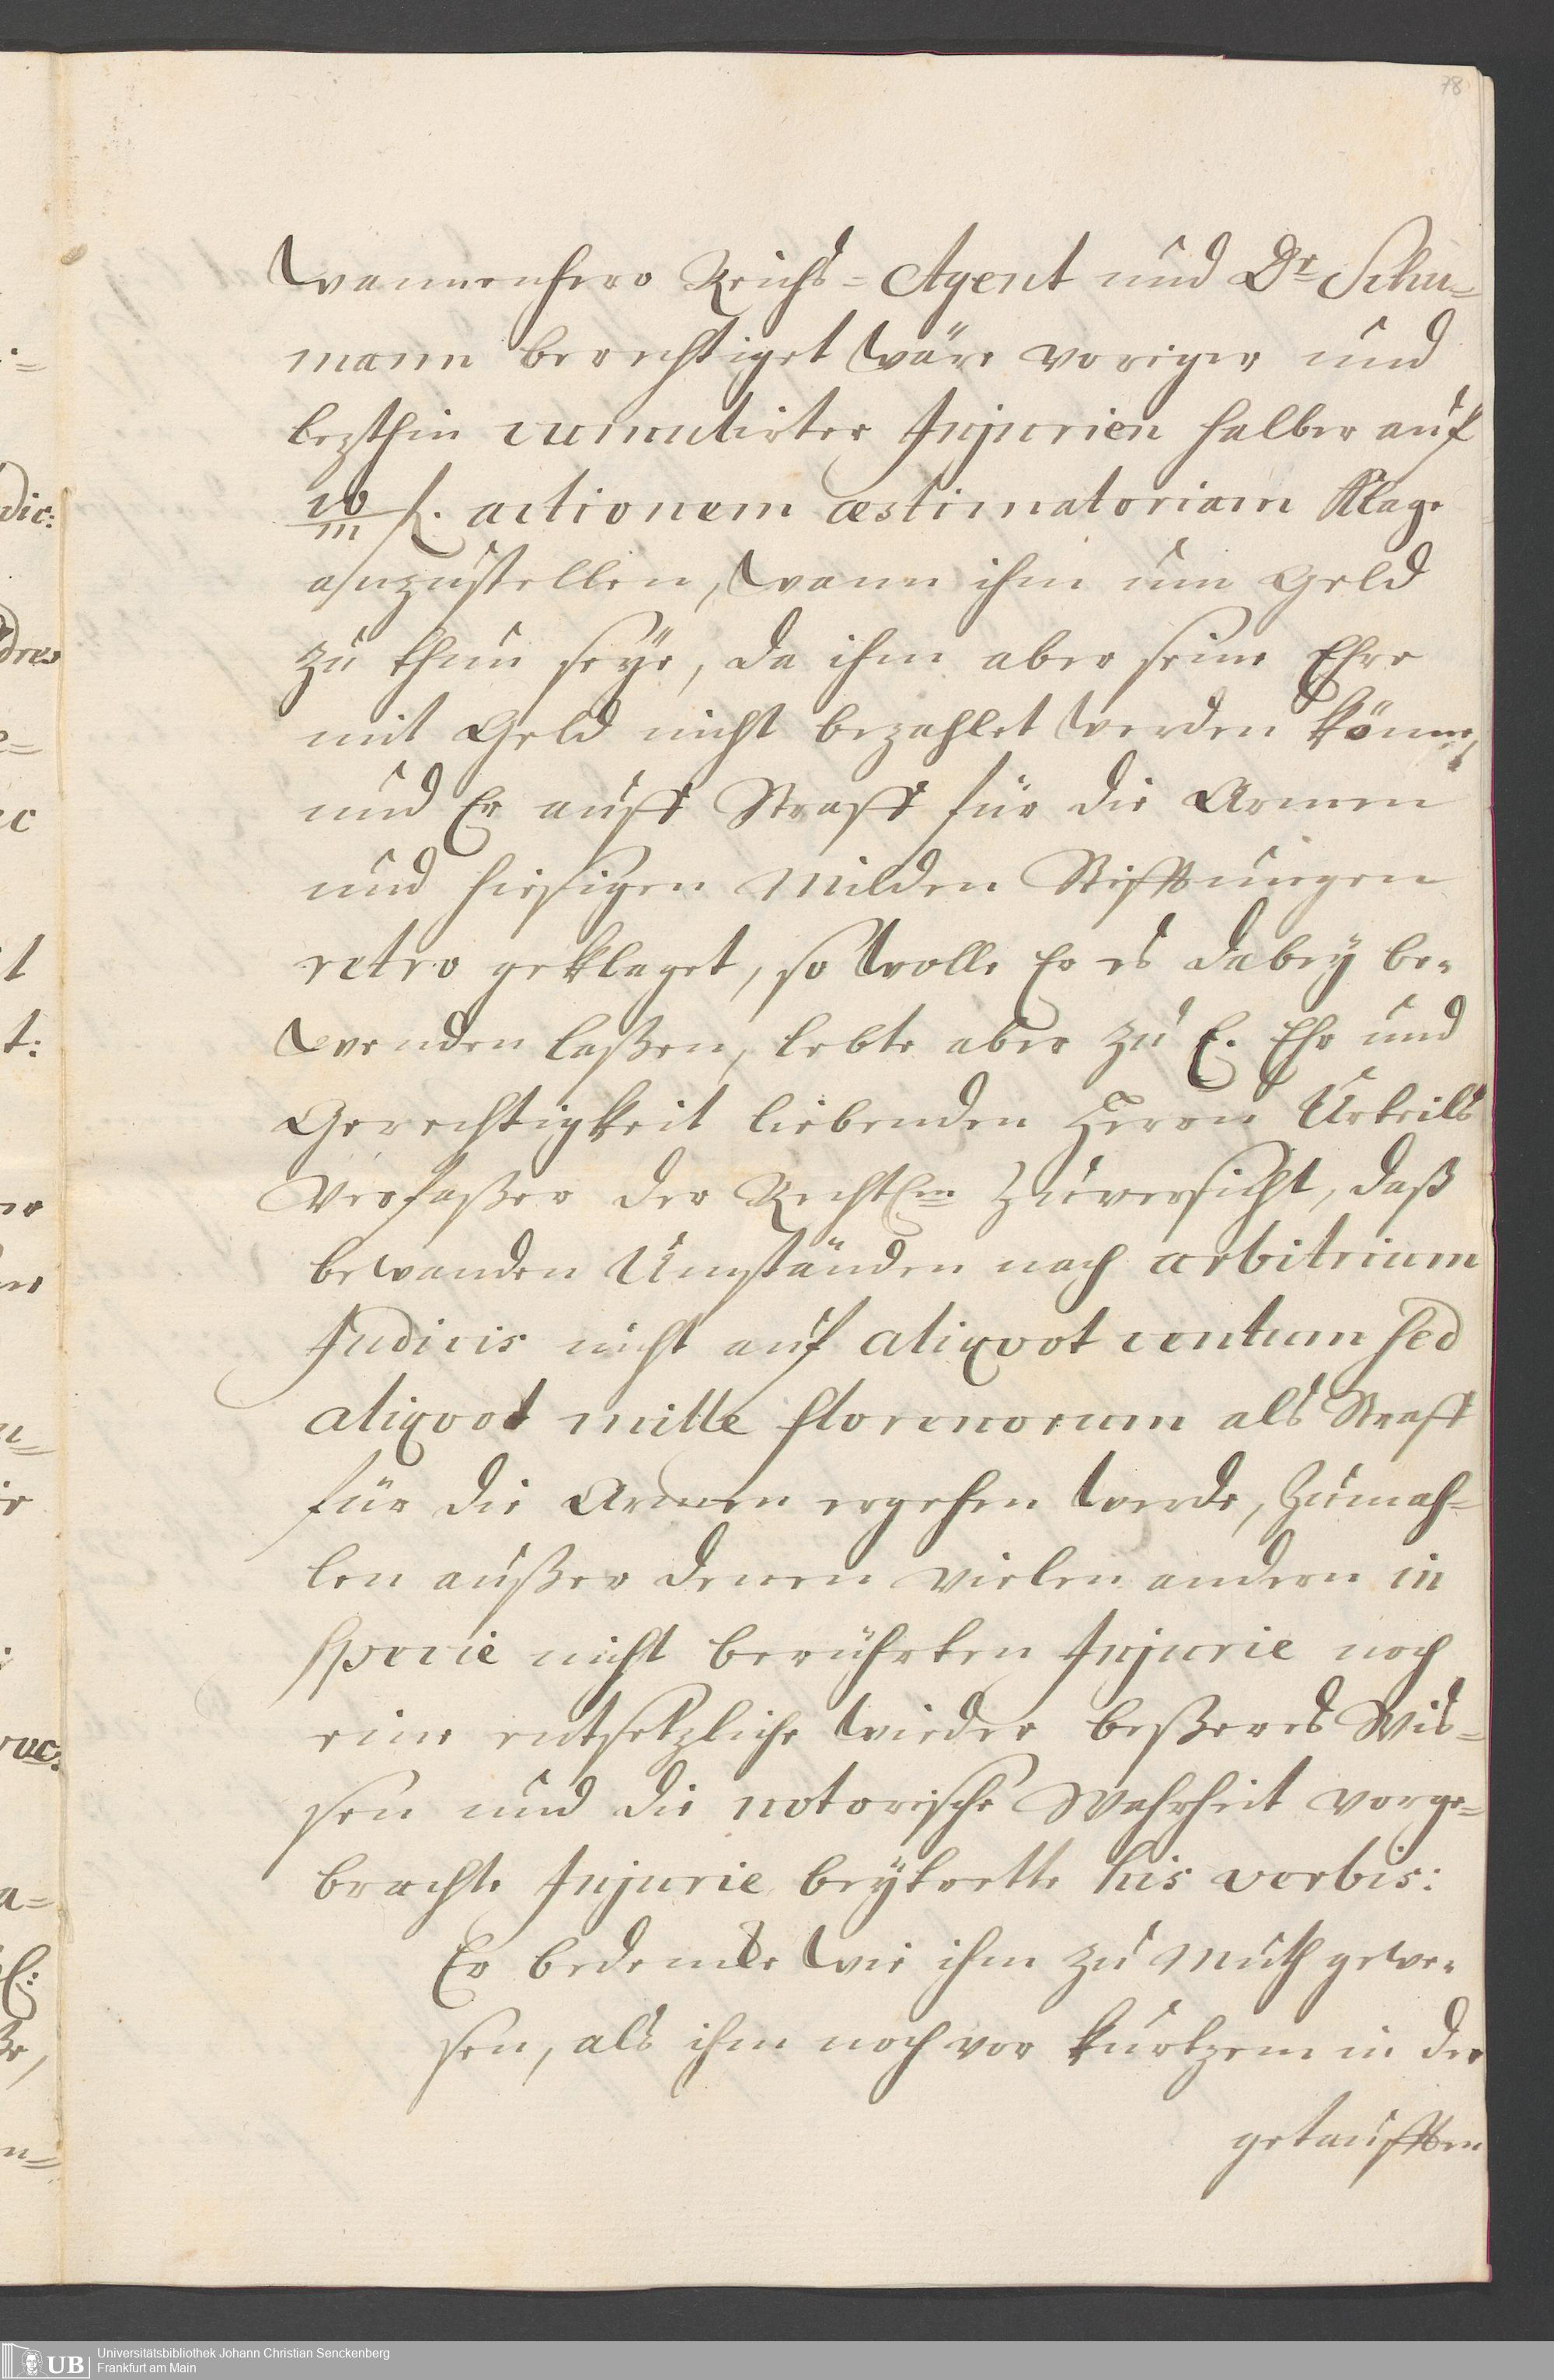 78
wannenhero Reichs-Agent und Dr Schu=
mann berechtiget wäre voriger und
lezthin cumulirter Injurien halber auf
10/m f. actionem æstimatoriam Klage
anzustellen, wann ihm um Geld
zu thun seye, da ihm aber seine Ehre
mit Geld nicht bezahlet werden könne,
und Er auff Straff für die Armen
und hiesigen Milden Stifftungen
retro geklaget, so wolle Er es dabey be-
wenden laßen, lebte aber zu E. Ehr und
Gerechtigkeit liebenden Herrn Urteils
Verfaßer der Rechtlen Zuversicht, daß
bewanden Umständen nach arbitrium
Judicis nicht auf aliqvot centum sed
aliqvot mille florenorum als Straff
für die Armen ergehen werde, Zumah=
len außer denen vielen andern in
specie nicht berührten Injurie noch
eine entsetzliche wieder beßeres Wis=
sen und die notorische Wahrheit vorge=
brachte Injurie beytrette his verbis:
Er bedencke wie ihm zu Muth gewe-
sen, als ihm noch vor kurtzem in der
getaufften
dic:
ec
t:
n=
ruc:
a=
UB
Universitätsbibliothek Johann Christian Senckenberg
Frankfurt am Main